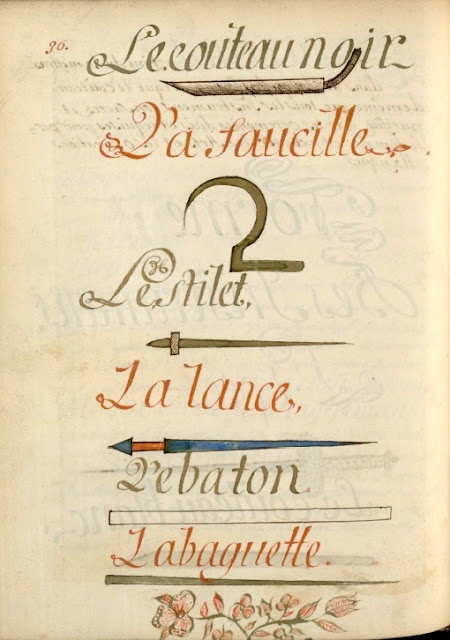 36.
Le couteau noir
La faucille
Le stilet,
La lance,
Le baton
La baguette.